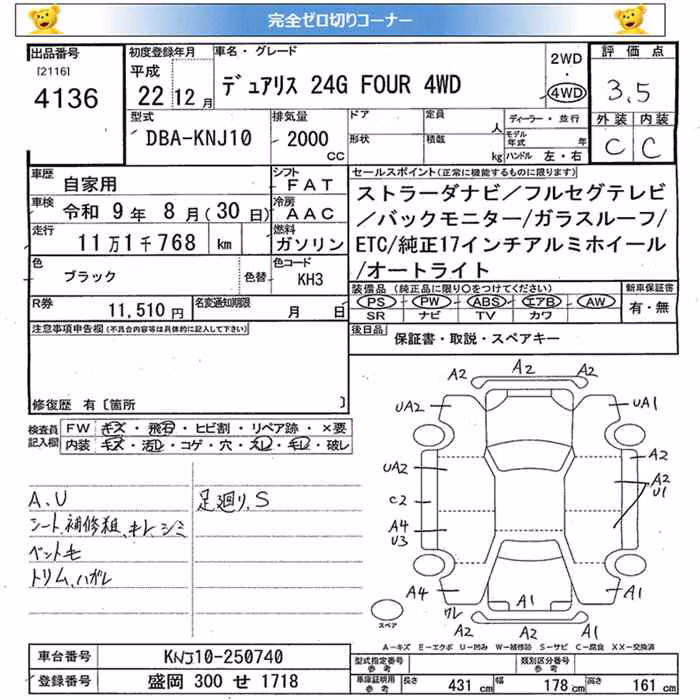 完全ゼロ切りコーナー
出品番号
[2116]
4136
初度登録年月
平成
22 12 月
車名・グレード
デュアリス 24G FOUR 4WD
2WD
・
4WD
評価点
3.5
外装 内装
C C
型式
DBA-KNJ10
排気量
2000
CC
ドア
形状
定員
人
積載
kg
ディーラー・並行
モデル年式 年
ハンドル 左・右
車歴
自家用
シフト
FAT
車検 令和 9年 8月(30日)
冷房
AAC
走行
11万1千768 km
燃料
ガソリン
色
ブラック
色替
色コード
KH3
R券
11,510円
名変通知期限
月 日
セールスポイント(正常に機能するものに限ります)
ストラーダナビ/フルセグテレビ
/バックモニター/ガラスルーフ/
ETC/純正17インチアルミホイール
/オートライト
装備品(純正品に限り○をつけてください)
PS PW ABS エアB AW
SR ナビ TV カワ
新車保証書
有・無
後日品
保証書・取説・スペアキー
注意事項申告欄(不具合内容等は具体的に記入して下さい)
修復歴 有〔箇所 〕
検査員
記入欄
FW キズ・飛石・ヒビ割・リペア跡・×要
内装 キズ・汚レ・コゲ・穴・スレ・キレ・破レ
A、U
シート、補修粗、キレ、シミ
ペット毛
トリム、ハガレ
足廻り、S
A2 A2 A2
UA2 UA1
UA2
A2
A2
U1
C2
A4
U3
A4
ワレ
A1
A1
C1
A2 A2 A2
スペア
A－キズ E－エクボ U－凹み W－補修跡 S－サビ C－腐食 XX－交換済
車台番号 KNJ10-250740
登録番号 盛岡 300 せ 1718
型式指定番号
参考
類別区分番号
参考
車庫証明用
参考
長さ 431 cm 幅 178 cm 高さ 161 cm